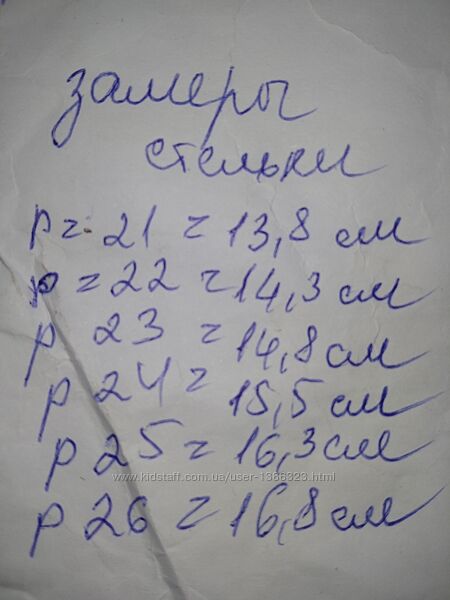 замеры
стельки
р = 21 = 13,8 см
р = 22 = 14,3 см
р 23 = 14,8 см
р 24 = 15,5 см
р 25 = 16,3 см
www.kidstaff.com.ua/user-1386323.html
р 26 = 16,8 см